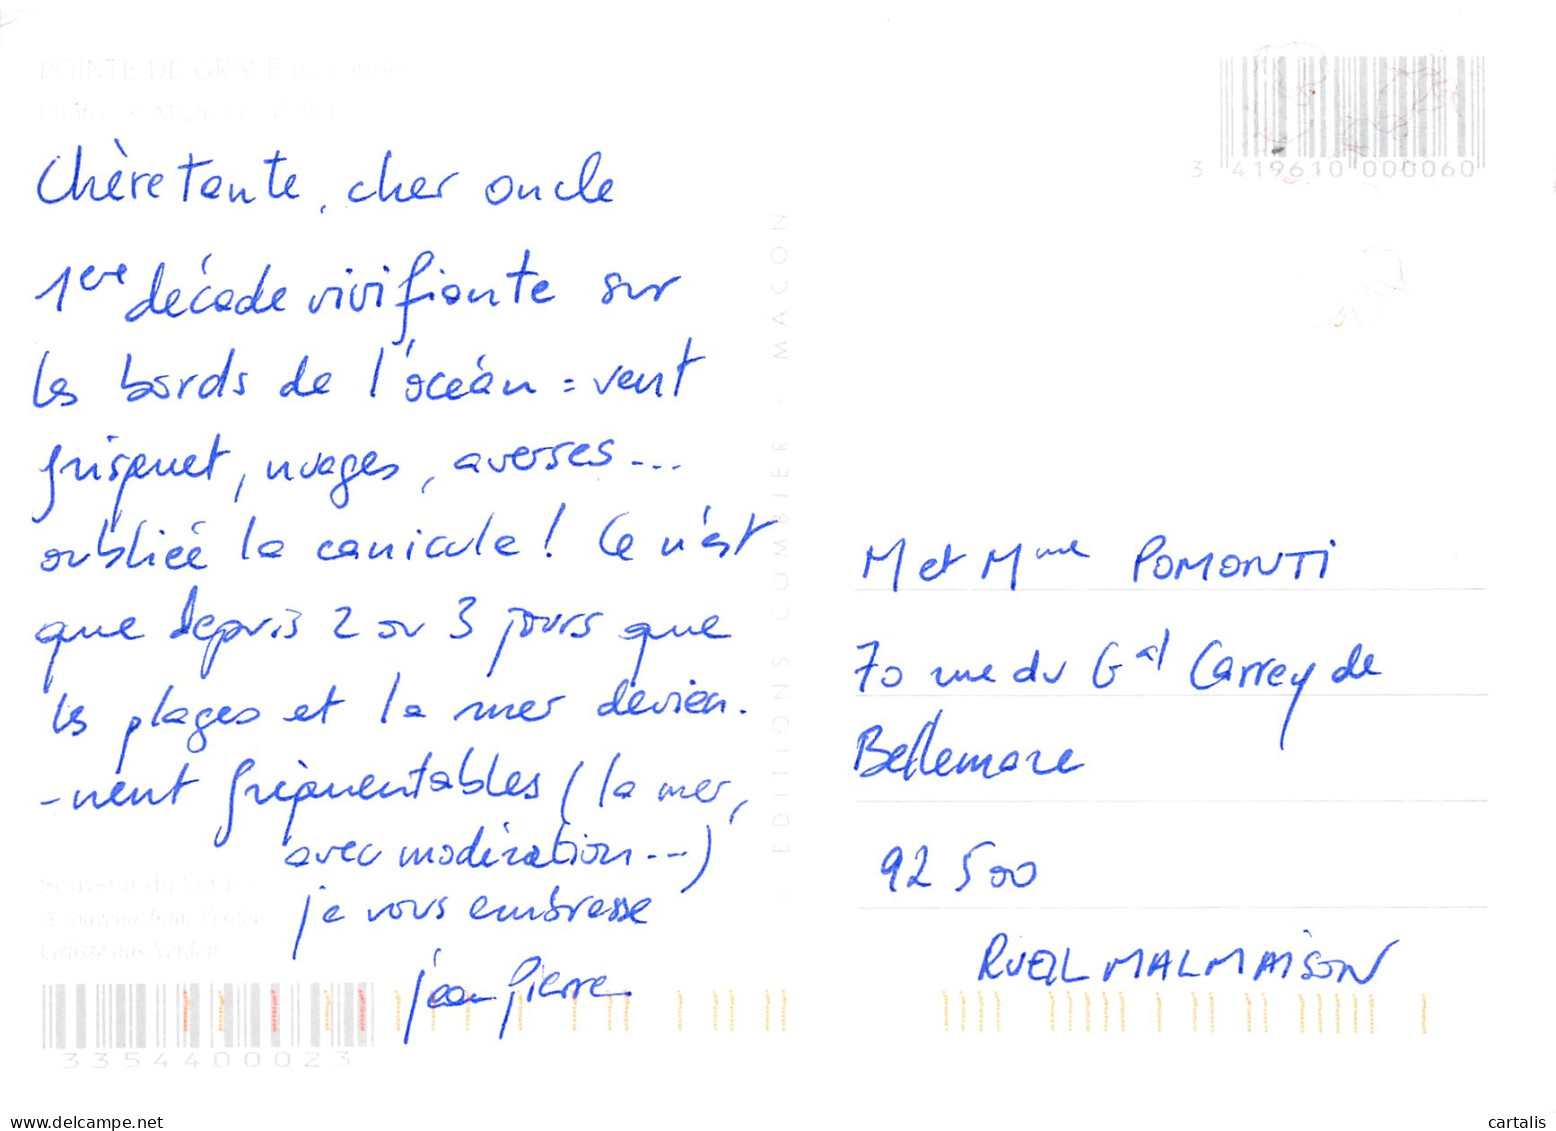 POINTE DE GRAVE
Chère Tante, cher oncle
1ère décade vivifiante sur
les bords de l'océan = vent
frisquet, nuages, averses...
oubliée la canicule ! Ce n'est
que depuis 2 ou 3 jours que
les plages et la mer devien-
-nent fréquentables (la mer,
avec modération...)
je vous embrasse
jean pierre
Souvenir du Verdon
A souvenir from Verdon
3354400023
EDITIONS COMBIER - MACON
3 419610 000060
M et Mme POMONTI
70 rue du Gal Carrey de
Bellemare
92 500
RUEIL MALMAISON
www.delcampe.net
cartalis